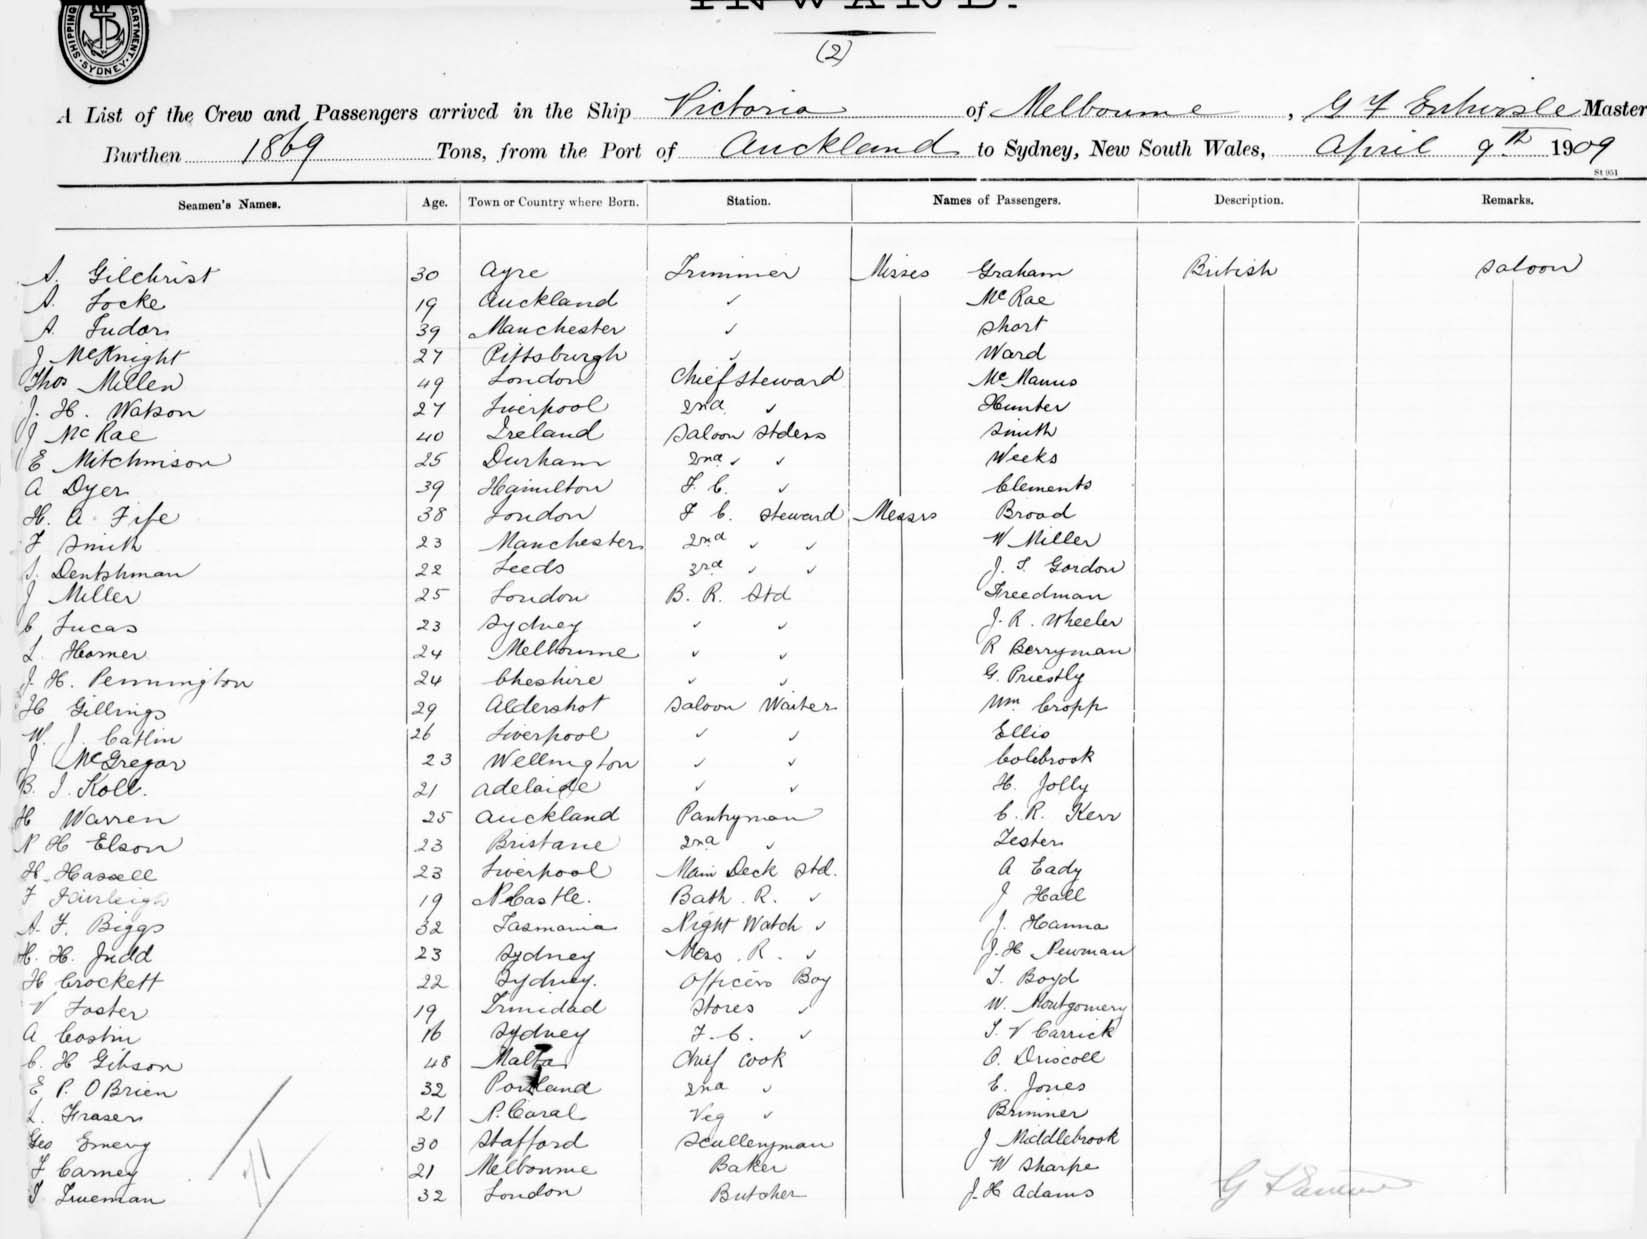 INWARD.
SHIPPING DEPARTMENT. SYDNEY.
(2)
A List of the Crew and Passengers arrived in the Ship Victoria of Melbourne, G F Master
Burthen 1869 Tons, from the Port of Auckland to Sydney, New South Wales, April 9th 1909
St 951
Seamen's Names. Age. Town or Country where Born. Station. Names of Passengers. Description. Remarks.
A. Gilchrist 30 Ayre Trimmer Misses Graham British Saloon
A. Locke 19 Auckland ✓ McRae
A. Tudor 39 Manchester ✓ Short
J McKnight 27 Pittsburgh ✓ Ward
Thos Millen 49 London Chief Steward McManus
J. H. Watson 27 Liverpool 2nd ✓ Hunter
J McRae 40 Ireland Saloon Stders Smith
E Mitchinson 25 Durham 2nd ✓ ✓ Weeks
A Dyer 39 Hamilton F. C. ✓ Clements
H. A. Fife 38 London F C. Steward Messrs Broad
F Smith 23 Manchester 2nd ✓ ✓ W Miller
S. Dentshman 22 Leeds 3rd ✓ ✓ J. S. Gordon
J Miller 25 London B. R. Std Freedman
C Lucas 23 Sydney ✓ ✓ J. R. Wheeler
L. Horner 24 Melbourne ✓ ✓ R Berryman
J. H. Pennington 24 Cheshire ✓ ✓ G. Priestly
H Gillings 29 Aldershot Saloon Waiter Wm Cropp
W. J. Catlin 26 Liverpool ✓ ✓ Ellis
J McGregor 23 Wellington ✓ ✓ Colebrook
B. I. Koll. 21 Adelaide ✓ ✓ H. Jolly
H Warren 25 Auckland Pantryman C. R. Kerr
N H Elson 23 Brisbane 2nd ✓ Lester
H. Hassell 23 Liverpool Main Deck Std. A Eady
F Fairleigh 19 N.Castle. Bath. R. ✓ J Hall
A. F. Biggs 32 Tasmania Night Watch ✓ J. Hanna
H. H. Judd 23 Sydney Mess. R. ✓ J. H Newman
H Crockett 22 Sydney. Officers Boy T. Boyd
V Foster 19 Trinidad Stores ✓ W. Montgomery
A Costin 16 Sydney F. C. ✓ T. V Carrick
C. H Gibson 48 Malta Chief Cook O. Driscoll
E P. OBrien 32 Portland 2nd ✓ E. Jones
L. Fraser 21 P. Coral Veg ✓ Brimner
Geo Emery 30 Stafford Scullenyman J Middlebrook
F Carney 21 Melbourne Baker W Sharpe
T Trueman 32 London Butcher J. H Adams